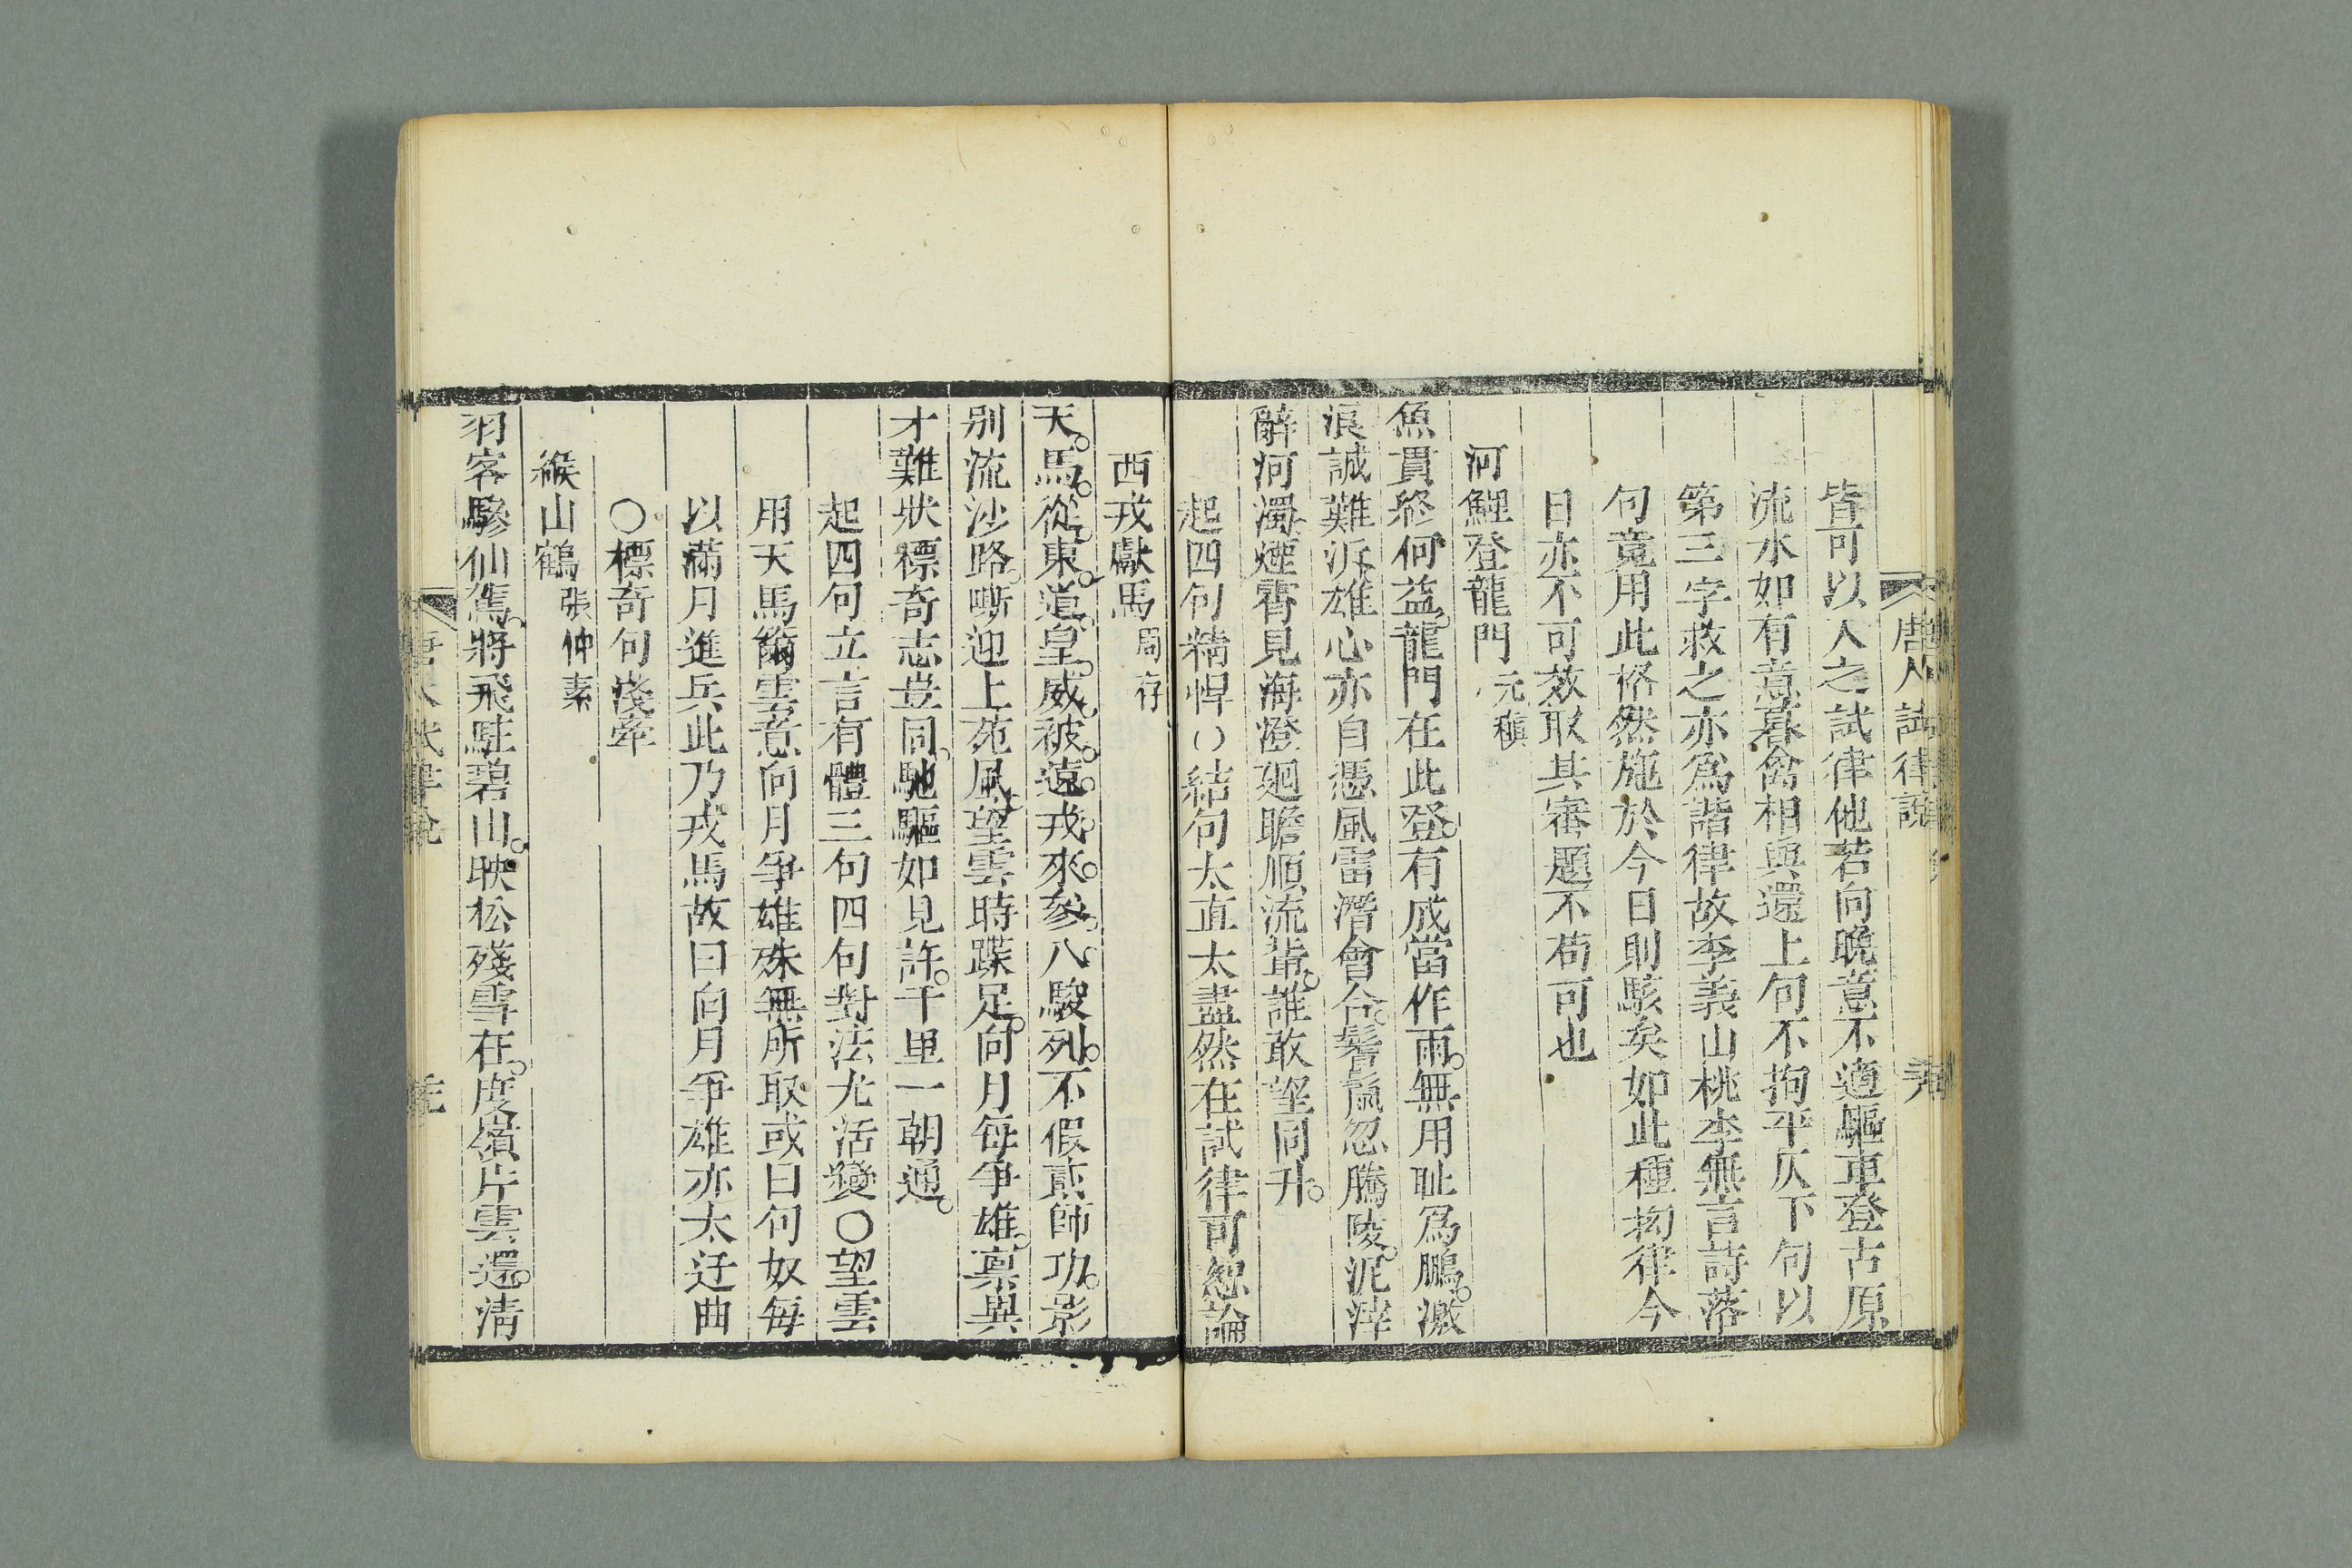 唐人試律說
皆可以入之試律他若向晚意不適驅車登古原
流水如有意暮禽相與還上句不拘平仄下句以
第三字救之亦為諧律故李義山桃李無言詩落
句竟用此格然施於今日則駭矣如此種拗律今
日亦不可效取其審題不苟可也
河鯉登龍門 元稹
魚貫終何益龍門在此登有成當作雨無用恥為鵬激
浪誠難泝雄心亦自憑風雷潛會合鬐鬣忽騰陵泥滓
辭河濁煙霄見海澄廻瞻順流輩誰敢望同升
起四句精悍結句太直太盡然在試律可恕論
西戎獻馬 周存
天馬從東道皇威被遠戎來參八駿列不假貳師功影
別流沙路嘶迎上苑風望雲時蹀足向月每爭雄稟異
才難狀標奇志豈同馳驅如見許千里一朝通
起四句立言有體三句四句對法尤活變〇望雲
用天馬籋雲意向月爭雄殊無所取或曰匈奴每
以滿月進兵此乃戎馬故曰向月爭雄亦太迂曲
〇標奇句淺率
緱山鶴 張仲素
羽客驂仙馭將飛駐碧山映松殘雪在度嶺片雲還清
唐人試律說